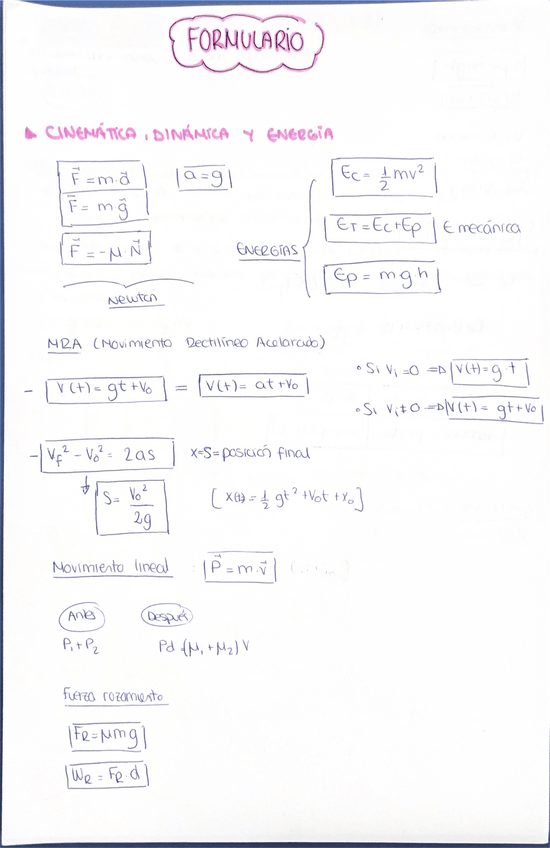 FORMULARIO
CINEMÁTICA, DINÁMICA Y ENERGÍA
F⃗ = m·a⃗
a = g
F⃗ = m·g⃗
F⃗ = -μ·N⃗
Newton
ENERGÍAS
Ec = 1/2 mv²
ET = Ec + Ep E mecánica
Ep = m g·h
MRA (Movimiento Rectilíneo Acelarado)
- V(t) = gt + V₀ = V(t) = at + V₀
• Si Vᵢ = 0 => V(t) = g·t
• Si Vᵢ ≠ 0 => V(t) = gt + V₀
- Vf² - V₀² = 2as x = S = posición final
S = V₀²/2g [x(t) = 1/2 gt² + V₀t + x₀]
Movimiento lineal P⃗ = m·v⃗
Antes Después
P₁ + P₂ Pd (M₁ + M₂) V
Fuerza rozamiento
FR = μmg
WR = FR·d